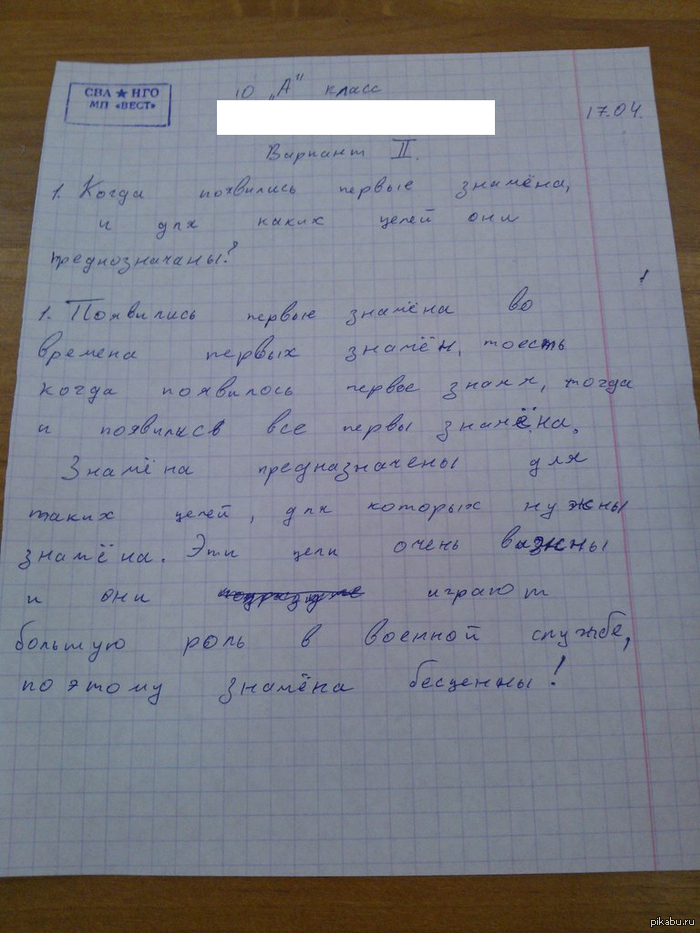 СВА ★ НГО
МП «ВЕСТ»
10 „А" класс
17.04.
Вариант II.
1. Когда появились первые знамёна,
и для каких целей они
преднозначаны?
1. Появились первые знамёна во
времена первых знамён, тоесть
когда появилось первое знамя, тогда
и появилась все первы знамёна.
Знамёна предназначены для
таких целей, для которых нужны
знамёна. Эти цели очень важны
и они играют
большую роль в военной службе,
поэтому знамёна бесценны!
pikabu.ru